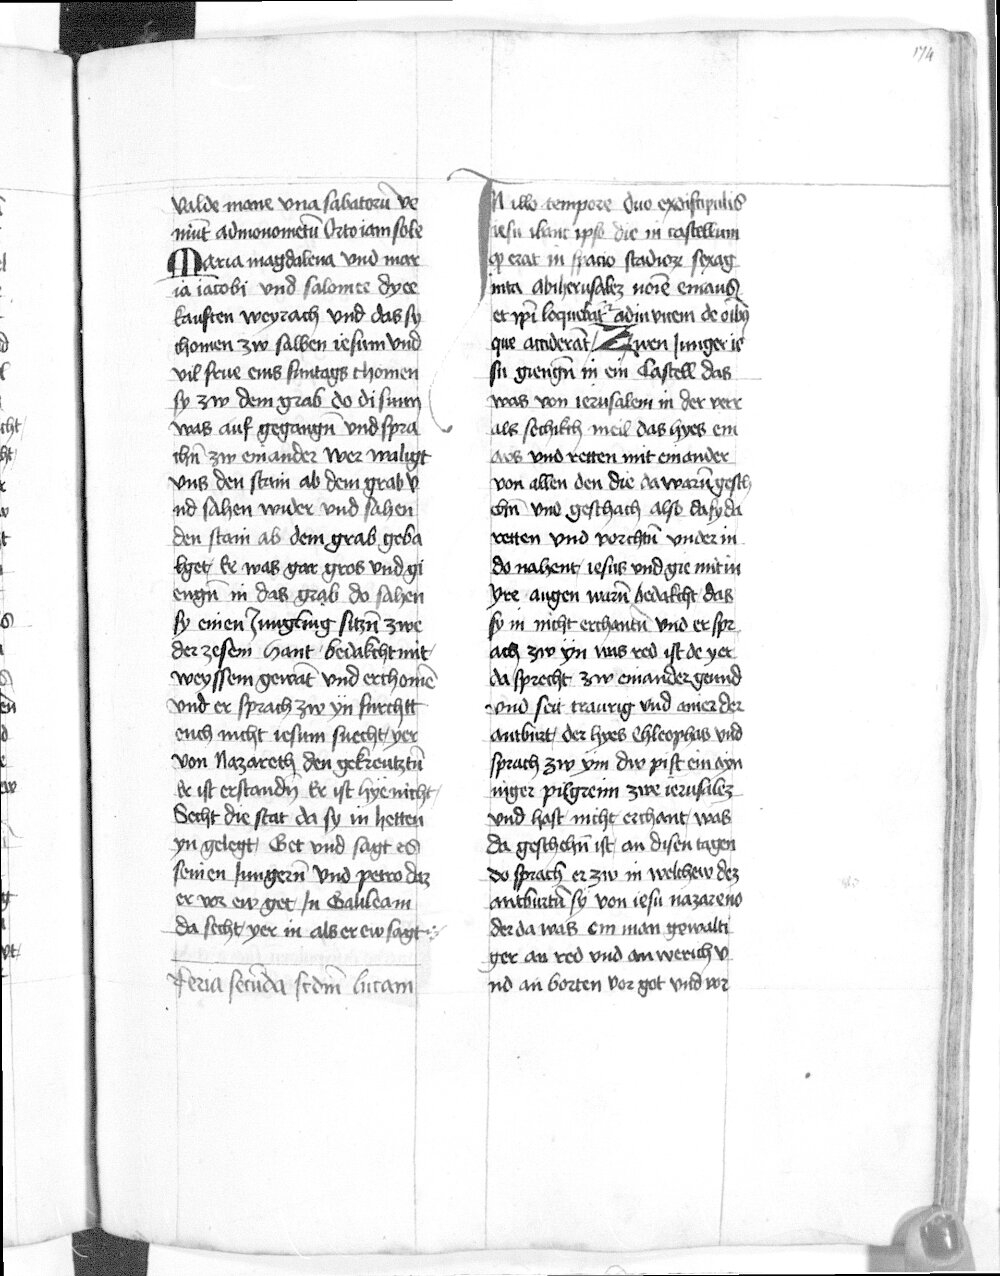 174
valde mane vna sabatorū ve
niūt admonometū Orto iam sole
Maria magdalena vnd mar
ia iacobi vnd salomee dyee
kauften weyrach vnd das sy
chomen zw salben iesum vnd
vil frue eins suntags chomen
sy zw dem grab do di sunn
was auf gegangn̄ vnd spra
chn̄ zw einander wer waligt
vns den stain ab dem grab v
nd sahen wider vnd sahen
den stain ab dem grab geba
lget / Er was gar gros vnd gi
engn̄ in das grab do sahen
sy einen Jungling sitzn̄ zwe
der zesem hant / bedakcht mit
weyssem gewāt vnd erchomē
vnd er sprach zw yn̄ furchtt
euch nicht iesum suecht / yer
von Nazareth den gekreutztn̄
Er ist erstandn̄ Er ist hye nicht /
Secht die stat da sy in hetten
yn gelegt / Get vnd sagt es
seinen Jungern̄ vnd petro daz
er vor ew get / In Galileam
da secht / yer in als er ew sagt
Feria secūda scdm̄ lucam
IN illo tempore Duo ex discipulis
iesu ibant ipso die in castellum
qͥ erat in spacio stadiorꝫ sexag
inta abiherusalez noīe emaus
et ip̄i loquebātͬ adinuicem de oīby
que acciderāt / Zwen Junger ie
su giengn̄ in ein Castell das
was von ierusalem in der verr
als sechikch meil das hyes em
aws vnd retten mit einander
von allen den die da warn̄ gesch
ehn̄ vnd geschach also da sy da
retten vnd vorchtn̄ vnder in
do nahent / iesus vnd gie mit in
yre augen warn̄ bedakcht das
sy in nicht erchantn̄ vnd er spr
ach zw yn was red ist de yer
da sprecht zw einander geund
vnd seit traurig vnd ainer der
antburt / der hyes Chleophas vnd
sprach zw ym dw pist ein ayn
niger pilgreim zwe ierusalez
vnd hast nicht erchant / was
da geschehn̄ ist / an disen tagen
do sprach er zw in welchew dez
antburtn̄ sy von iesu nazareno
der da was ein man gewalti
ger an red vnd an werich v
nd an borten vor got vnd vor